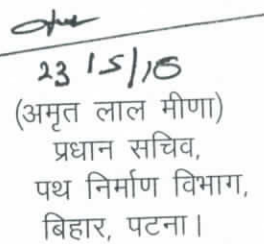 23/5/18
(अमृत लाल मीणा)
प्रधान सचिव,
पथ निर्माण विभाग,
बिहार, पटना।